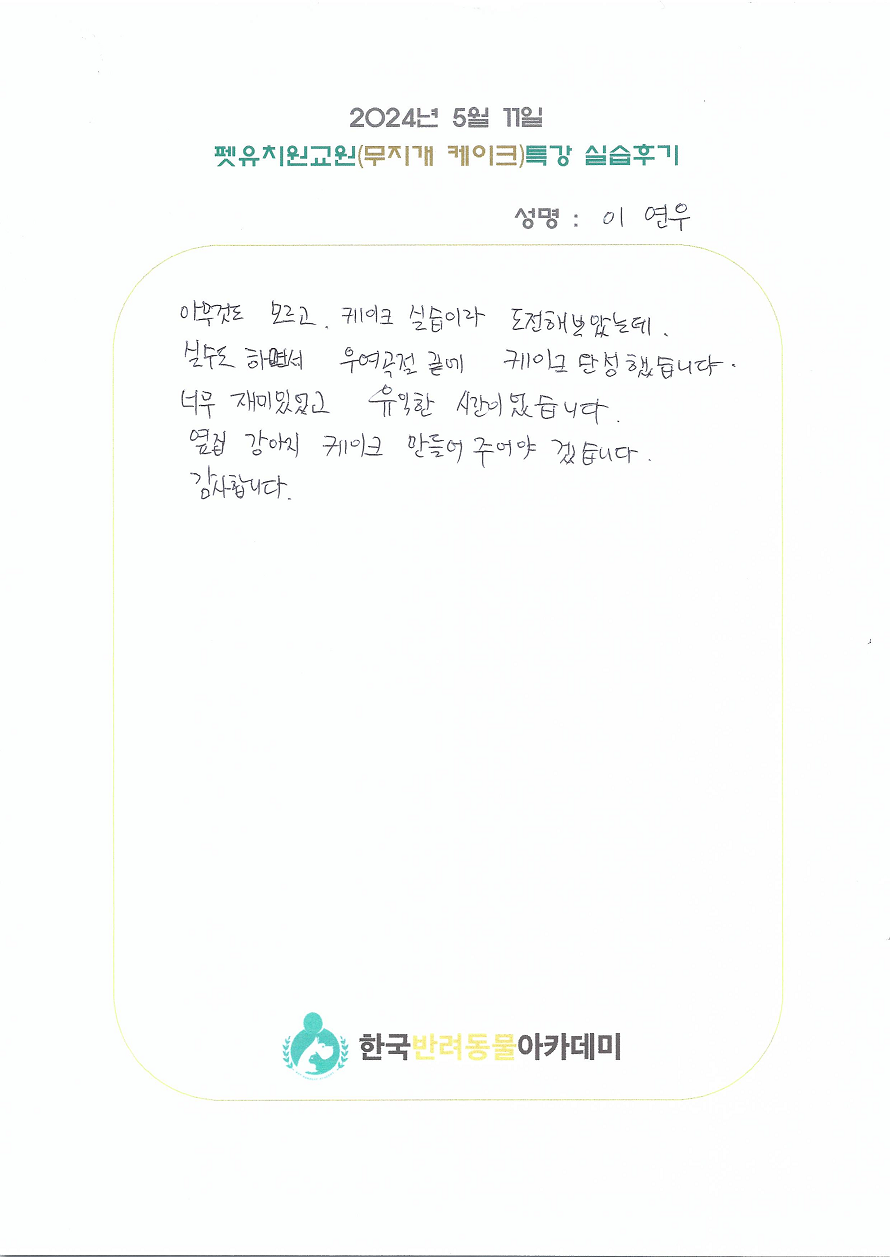 2024년 5월 11일
펫유치원교원(무지개 케이크)특강 실습후기
성명 : 이 연우
아무것도 모르고. 케이크 실습이라 도전해보았는데.
실수도 하면서 우여곡절 끝에 케이크 완성했습니다.
너무 재미있었고 유익한 시간이었습니다.
옆집 강아지 케이크 만들어 주어야 겠습니다.
감사합니다.
한국반려동물아카데미